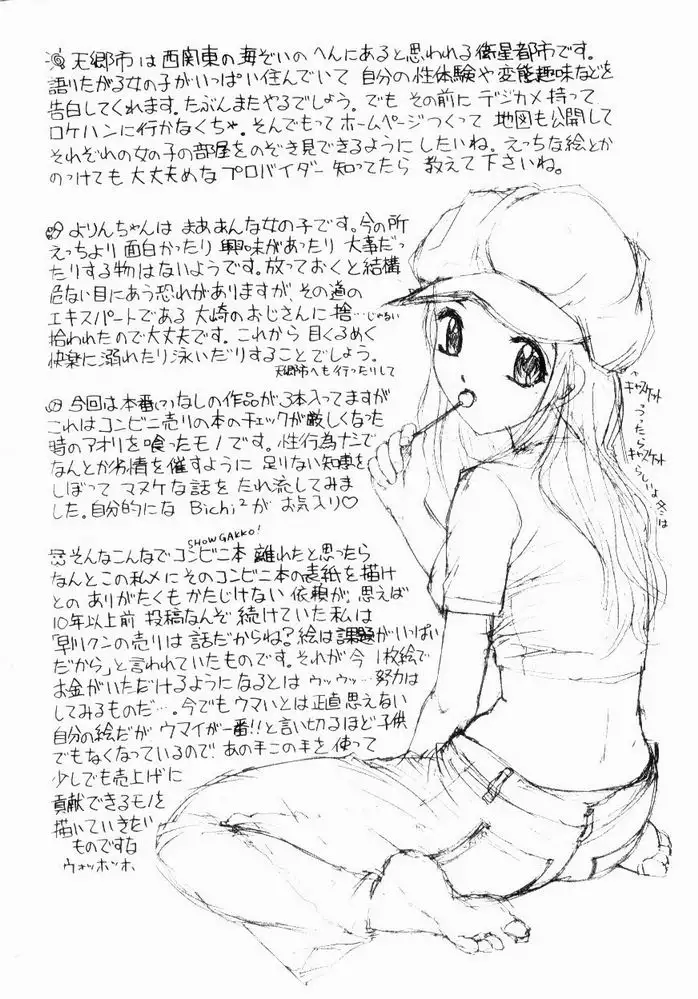 天郷市は西関東の海ぞいのへんにあると思われる衛星都市です。
語りたがる女の子がいっぱい住んでいて 自分の性体験や変態趣味などを
告白してくれます。たぶんまたやるでしょう。でも その前に デジカメ持って
ロケハンに行かなくちゃ。そんでもってホームページつくって 地図も公開して
それぞれの女の子の部屋をのぞき見できるようにしたいね。えっちな絵とか
のっけても大丈夫めなプロバイダー知ってたら 教えて下さいね。
よりんちゃんは まああんな女の子です。今の所
えっちより 面白かったり 興味があったり 大事だっ
たりする物はないようです。放っておくと結構
危ない目にあう恐れがありますが、その道の
エキスパートである 大崎のおじさんに 捨…じゃない
拾われたので大丈夫です。これから 目くるめく
快楽に溺れたり泳いだりすることでしょう。
天郷市へも行ったりして
今回は本番(?)なしの作品が3本入ってますが
これはコンビニ売りの本のチェックが厳しくなった
時のアオリを喰ったモノです。性行為だで
なんとか劣情を催すように 足りない知恵を
しぼって マヌケな話を たれ流してみま
した。自分的にな Bichi²が お気入り♡
SHOWGAKKO!
そんなこんなでコンビニ本 離れたと思ったら
なんとこの私メにそのコンビニ本の表紙を描け
との ありがたくもかたじけない 依頼が、思えば
10年以上前 投稿なんぞ続けていた私は
「早リクンの売りは 話だからね?絵は課題がいっぱい
だから」と言われていたものです。それが今 1枚絵で
お金がいただけるようになるとは ウッウッ…努力は
してみるものだ…。今でもウマいとは正直思えない
自分の絵だが ウマイが一番!!と言い切るほど子供
でもなくなっているので あの手この手を使って
少しでも売上げに
貢献できるモノを
描いていきたい
ものですな
ウォッホッホ
キャスケット
つったら
キャスケット
らしいよ 冬は